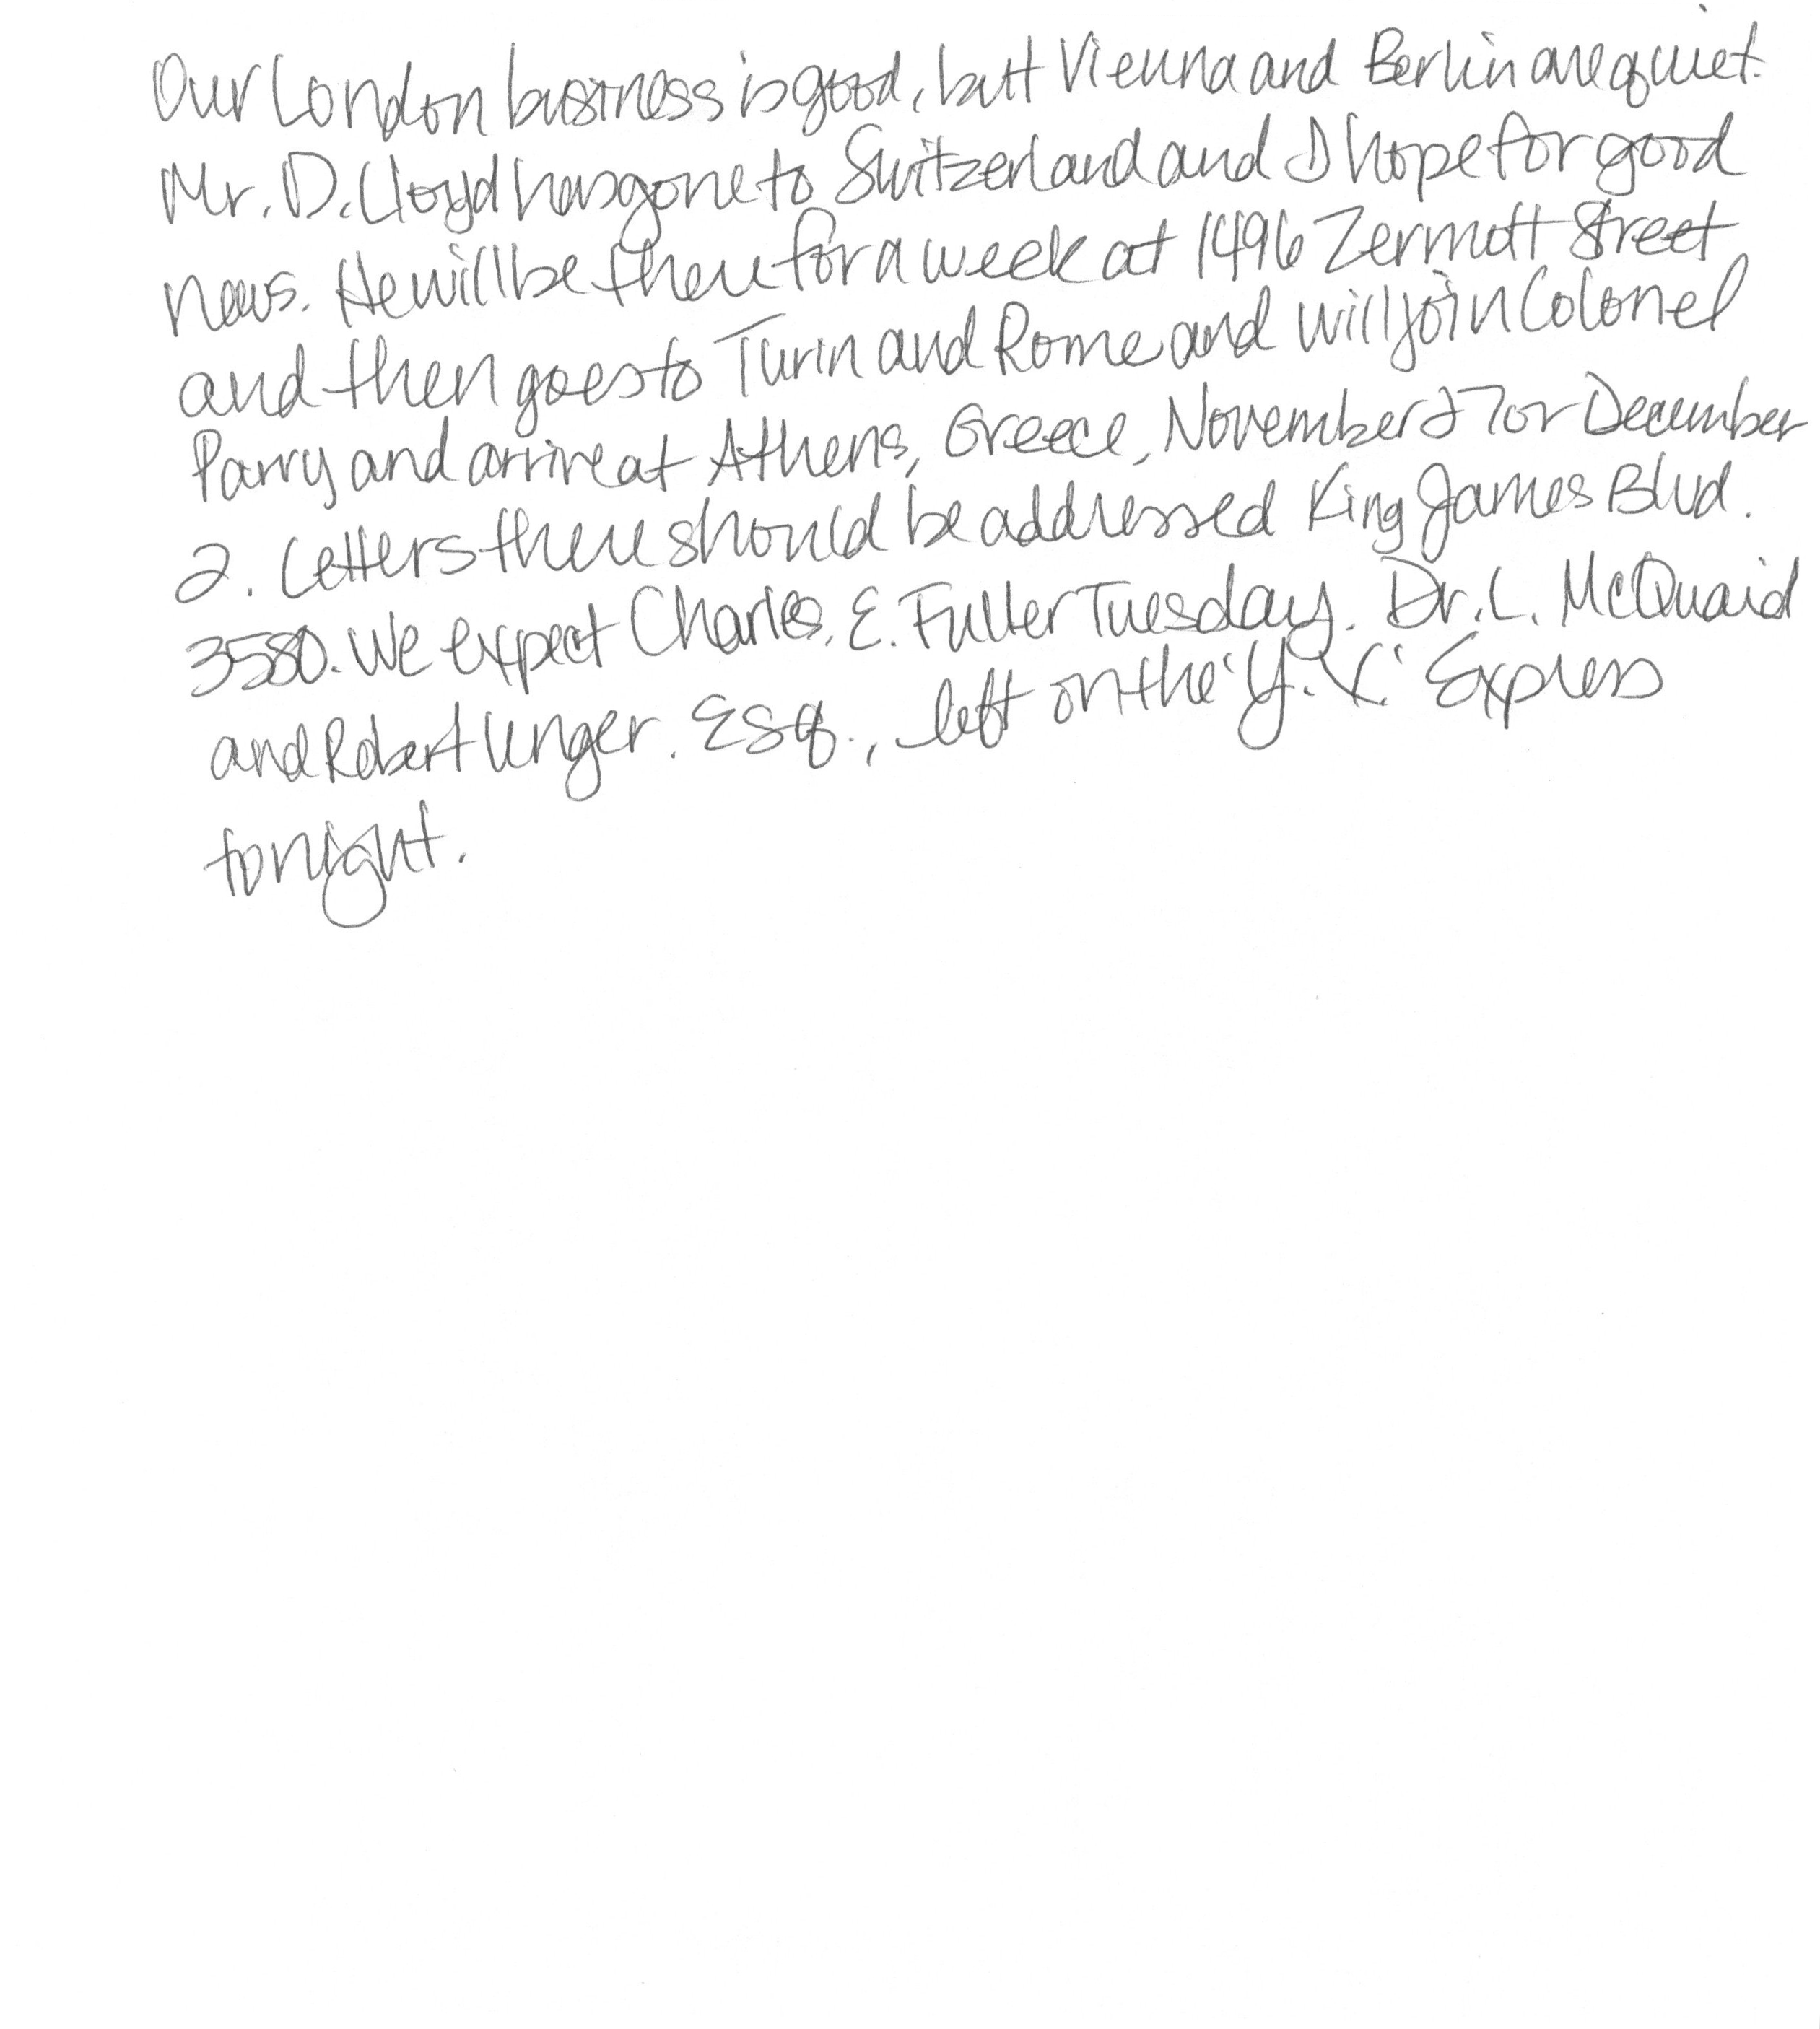 Our London business is good, but Vienna and Berlin are quiet.
Mr. D. Lloyd has gone to Switzerland and I hope for good
news. He will be there for a week at 1496 Zermott Street
and then goes to Turin and Rome and will join Colonel
Parry and arrive at Athens, Greece, November 27 or December
2. Letters there should be addressed King James Blvd.
3580. We expect Charles E. Fuller Tuesday. Dr. L. McQuaid
and Robert Unger. Esq., left on the "Y. X." Express
tonight.